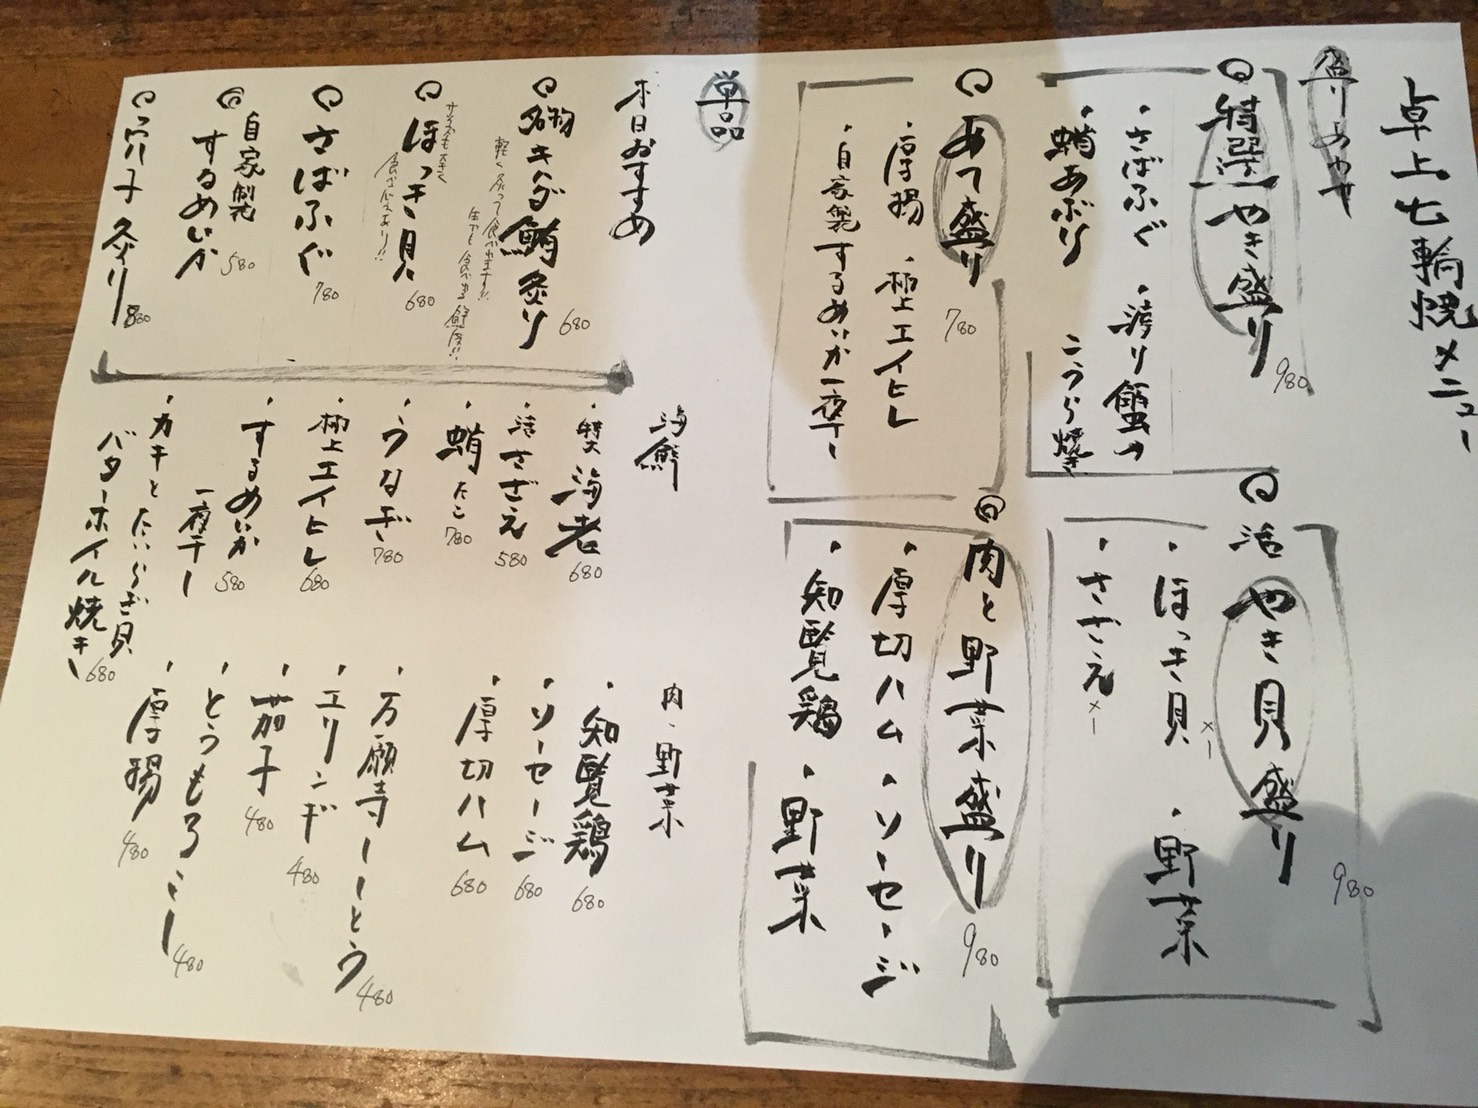 卓上七輪焼メニュー
盛りあわせ
特選やき盛り 980
・さばふぐ ・誇り蟹の
・蛸あぶり こうら焼き
活やき貝盛り 980
・ほっき貝 ・野菜
・さざえ
あて盛り 780
・厚揚 ・極上エイヒレ
・自家製するめいか一夜干し
肉と野菜盛り 980
・厚切ハム・ソーセージ
・知覧鶏・野菜
単品
本日おすすめ
キハダ鮪炙り 680
軽く炙って食べれます!!
生でも食べれる鮮度!!
ほっき貝 680
サイズも大きく
食べごたえあり!!
さばふぐ 780
自家製
するめいか 580
穴子炙り
海鮮
・特大海老 680
・活さざえ 580
・蛸たこ 780
・うなぎ 780
・極上エイヒレ 680
・するめいか 580
一夜干し
・カキとたいらぎ貝
バターホイル焼き 680
肉・野菜
・知覧鶏 680
・ソーセージ 680
・厚切ハム 680
・万願寺しーとう 480
・エリンギ 480
・茄子 480
・とうもろこし 480
・厚揚 480